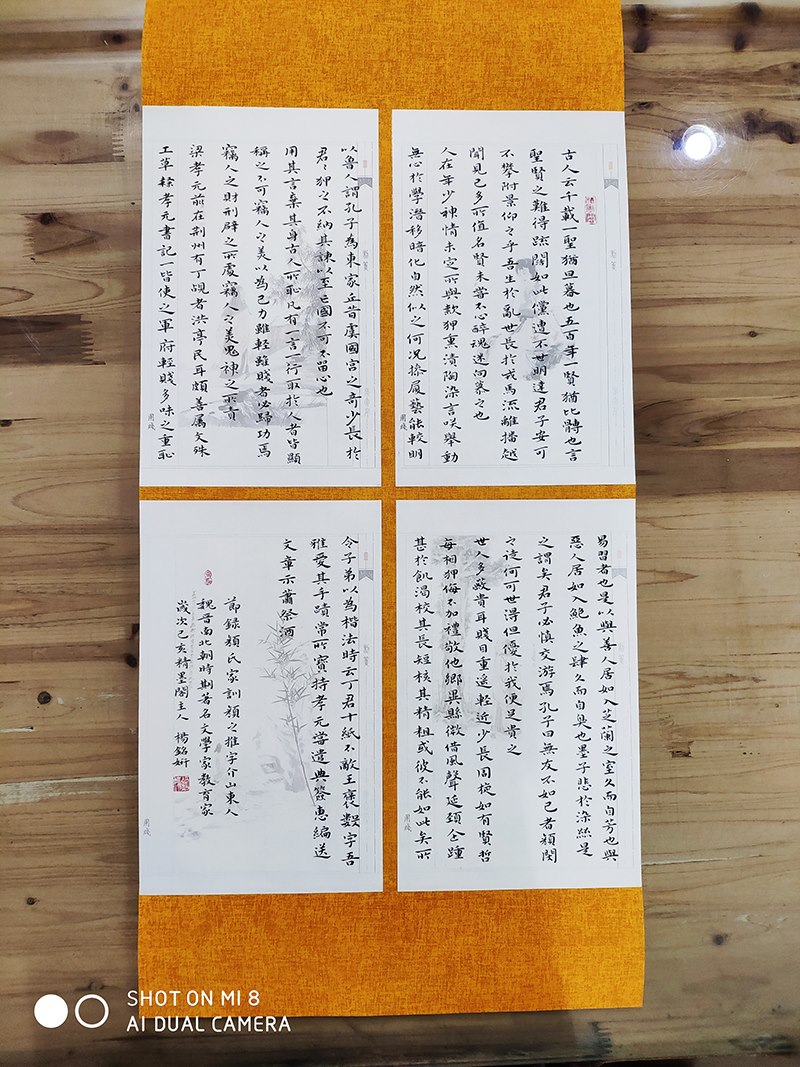 古人云千載一聖猶旦暮也五百年一賢猶比髆也言
聖賢之難得疏闊如此儻遭不世明達君子安可
不攀附景仰之乎吾生於亂世長於戎馬流離播越
聞見已多所值名賢未嘗不心醉魂迷向慕之也
人在年少神情未定所與款狎熏漬陶染言笑舉動
無心於學潛移暗化自然似之何況操履藝能較明
易習者也是以與善人居如入芝蘭之室久而自芳也與
惡人居如入鮑魚之肆久而自臭也墨子悲於染絲是
之謂矣君子必慎交游焉孔子曰無友不如己者顏閔
之徒何可世得但優於我便足貴之
世人多蔽貴耳賤目重遙輕近少長周旋如有賢哲
每相狎侮不加禮敬他鄉異縣微借風聲延頸企踵
甚於飢渴校其長短核其精粗或彼不能如此矣所
以魯人謂孔子為東家丘昔虞國宮之奇少長於
君々狎之不納其諫以至亡國不可不留心也
用其言棄其身古人所恥凡有一言一行取於人者皆顯
稱之不可竊人之美以為己力雖輕雖賤者必歸功焉
竊人之財刑辟之所處竊人之美鬼神之所責
梁孝元前在荊州有丁覘者洪亭民耳頗善屬文殊
工草隸孝元書記一皆使之軍府輕賤多味之重恥
令子弟以為楷法時云丁君十紙不敵王褒數字吾
雅愛其手蹟常所寶持孝元嘗遣典簽惠編送
文章示蕭祭酒
節錄顏氏家訓顏之推字介山東人
魏晉南北朝時期著名文學家教育家
歲次己亥精墨閣主人 楊銘妍
SHOT ON MI 8
AI DUAL CAMERA